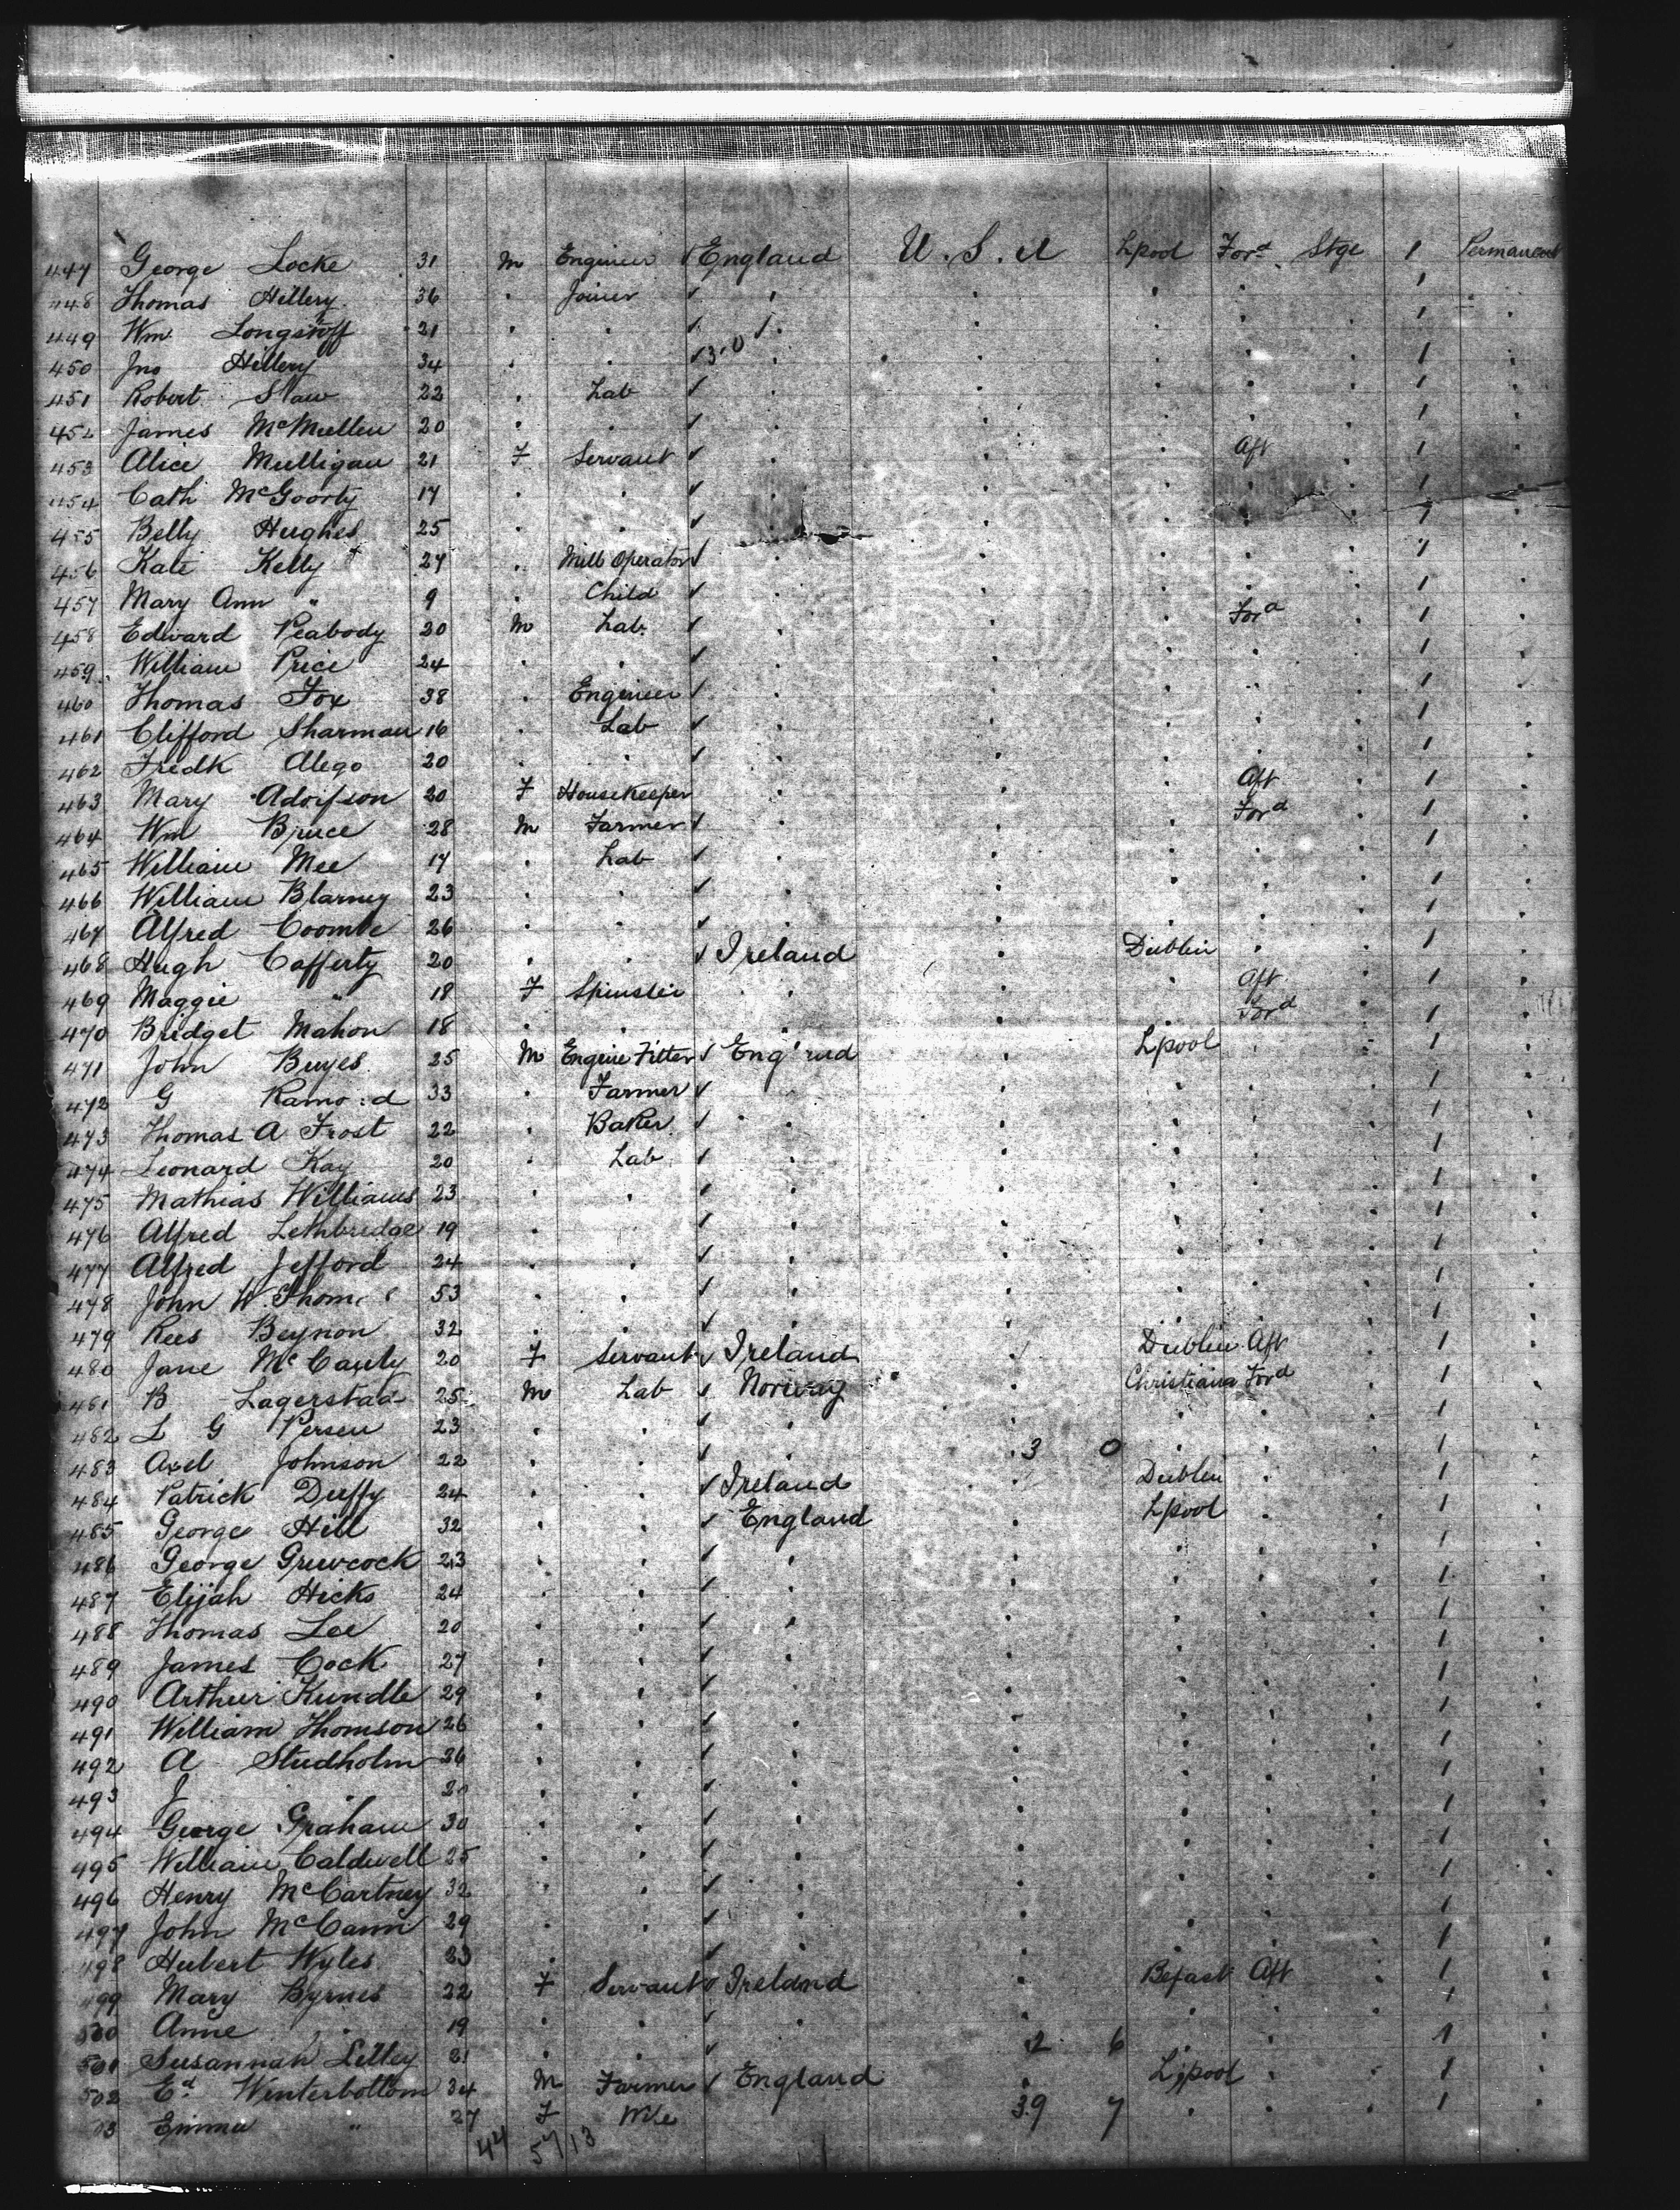 447 George Locke 31 m Engineer ✓ England U.S.A Lpool Ford Stge 1 Permanent
448 Thomas Hillery 36 " Joiner ✓ " " " " " 1 "
449 Wm Longstoff 21 " " ✓ " " " " " 1 "
450 Jno Hillery 34 " " ✓ 3.0 " " " " 1 "
451 Robert Slaw 22 " Lab ✓ " " " " " 1 "
452 James McMullen 20 " " ✓ " " " " " 1 "
453 Alice Mulligan 21 F Servant ✓ " " " Aft " 1 "
454 Cath McGoorty 17 " " ✓ " " " " " 1 "
455 Belly Hughes 25 " " ✓ " " " " " 1 "
456 Kate Kelly 27 " Mill Operator ✓ " " " " " 1 "
457 Mary Ann " 9 " Child ✓ " " " " " 1 "
458 Edward Peabody 30 M Lab ✓ " " " Ford " 1 "
459 William Price 24 " " ✓ " " " " " 1 "
460 Thomas Fox 38 " Engineer ✓ " " " " " 1 "
461 Clifford Sharman 16 " Lab ✓ " " " " " 1 "
462 Fredk Alego 20 " " ✓ " " " " " 1 "
463 Mary 20 F Housekeeper " " " Aft " 1 "
464 Wm Bruce 28 M Farmer ✓ " " " Ford " 1 "
465 William Mee 17 " Lab ✓ " " " " " 1 "
466 William Blarney 23 " " ✓ " " " " " 1 "
467 Alfred Coombe 26 " " ✓ " " " " " 1 "
468 Hugh Cafferty 20 " " ✓ Ireland " Dublin " " 1 "
469 Maggie " 18 F Spinster " " " Aft " 1 "
470 Bridget Mahon 18 " " " " " Ford " 1 "
471 John Buyes 25 M Engine Fitter ✓ Eng'nd " Lpool " " 1 "
472 G 33 " Farmer ✓ " " " " " 1 "
473 Thomas A Frost 22 " Baker ✓ " " " " " 1 "
474 Leonard Kay 20 " Lab ✓ " " " " " 1 "
475 Mathias Williams 23 " " ✓ " " " " " 1 "
476 Alfred Lethbridge 19 " " ✓ " " " " " 1 "
477 Alfred Jefford 24 " " ✓ " " " " " 1 "
478 John W. Thom 53 " " ✓ " " " " " 1 "
479 Rees Beynon 32 " " ✓ " " " " " 1 "
480 Jane McCauly 20 F Servant ✓ Ireland " Dublin Aft " 1 "
481 B Lagerstad 25 M Lab ✓ Norway " Christiana Ford " 1 "
482 L G Persen 23 " " ✓ " " " " " 1 "
483 Axel Johnson 22 " " ✓ " 3 0 " " " 1 "
484 Patrick Duffy 24 " " ✓ Ireland " Dublin " " 1 "
485 George Hill 32 " " ✓ England " Lpool " " 1 "
486 George Grewcock 23 " " ✓ " " " " " 1 "
487 Elijah Hicks 24 " " ✓ " " " " " 1 "
488 Thomas Lee 20 " " ✓ " " " " " 1 "
489 James Cock 27 " " ✓ " " " " " 1 "
490 Arthur Kundle 29 " " ✓ " " " " " 1 "
491 William Thomson 26 " " ✓ " " " " " 1 "
492 A Studholm 26 " " ✓ " " " " " 1 "
493 J " 20 " " ✓ " " " " " 1 "
494 George Graham 30 " " ✓ " " " " " 1 "
495 William Caldwell 25 " " ✓ " " " " " 1 "
496 Henry McCartney 32 " " ✓ " " " " " 1 "
497 John McCann 29 " " ✓ " " " " " 1 "
498 Hubert Wyles 23 " " ✓ " " " " " 1 "
499 Mary Byrnes 22 F Servant ✓ Ireland " Befast Aft " 1 "
500 Anne " 19 " " ✓ " " " " " 1 "
501 Susannah Lilley 21 " " ✓ " 2 6 " " " 1 "
502 Ed Winterbottom 34 M Farmer ✓ England " Lpool " " 1 "
03 Emma " 27 F Wife 39 7 " " " 1 "
44 57/13